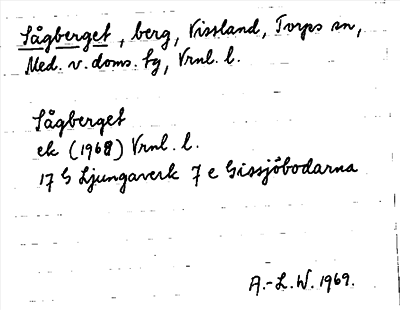 Sågberget, berg, Vissland, Torps sn,
Med. v. doms. fg, Vrnl. l.
Sågberget
ek (1968) Vrnl. l.
17 G Ljungaverk 7 e Gissjöbodarna
A.-L. W. 1969.